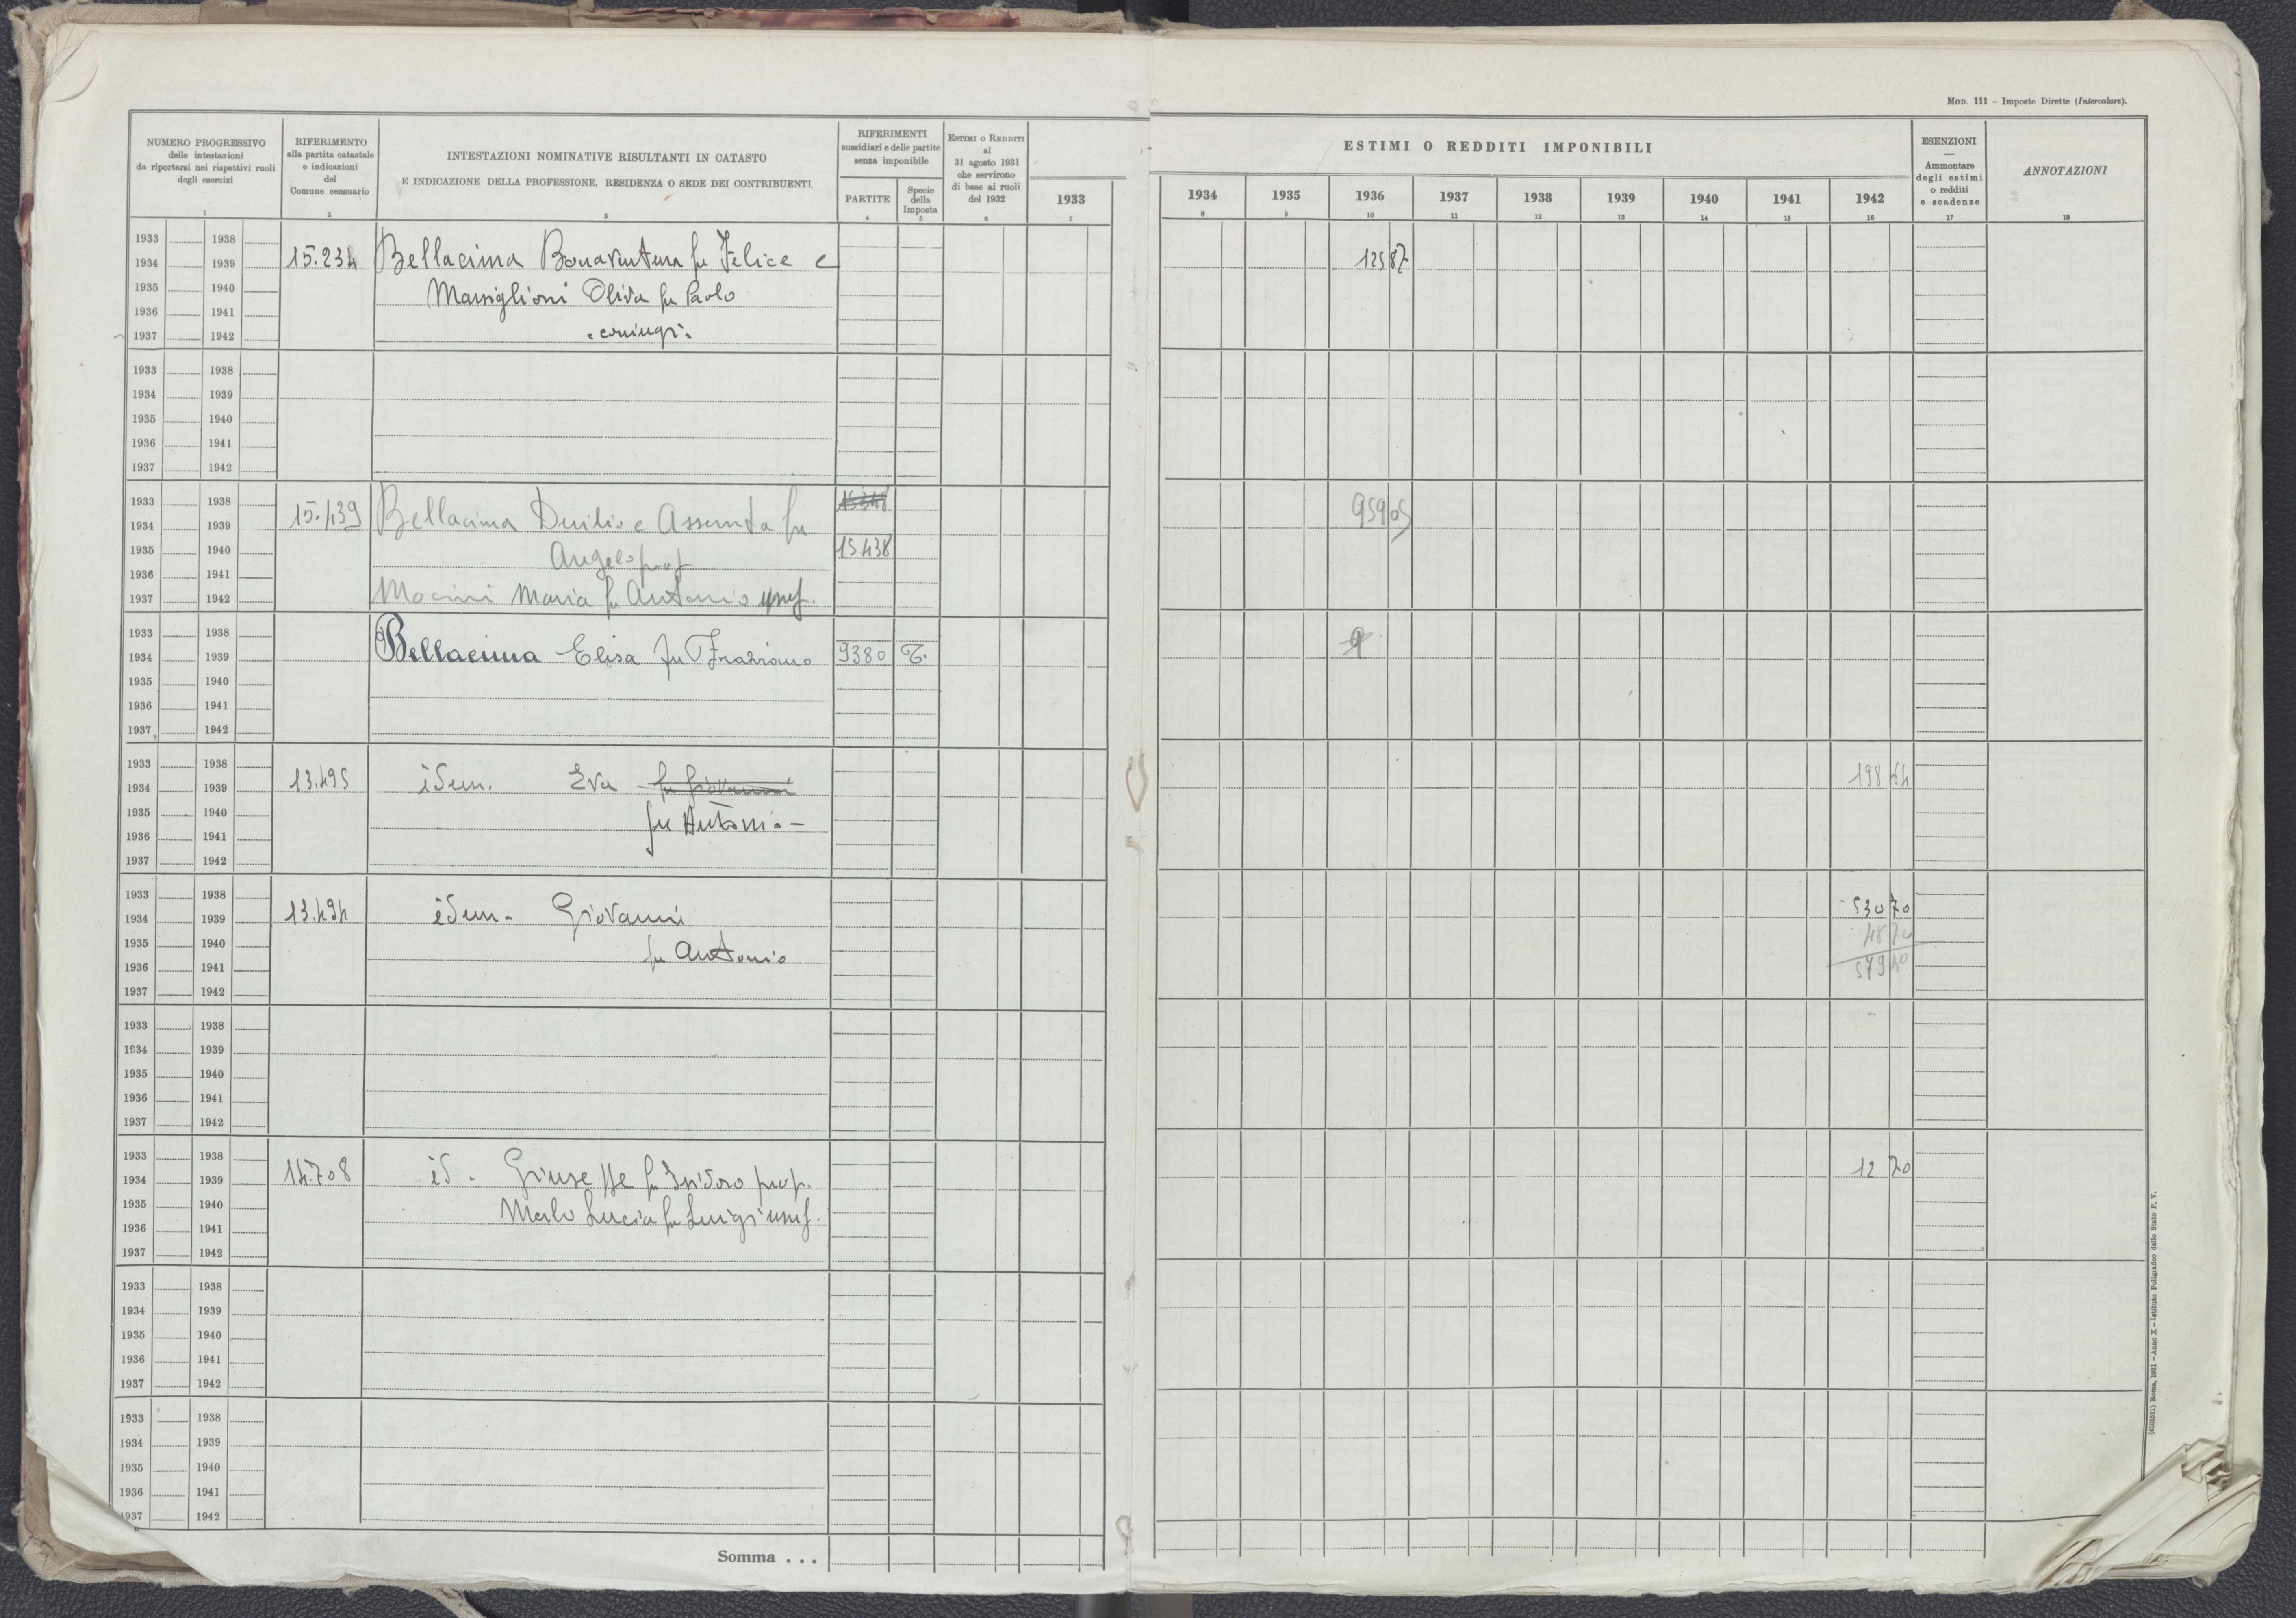 MOD. 111 – Imposte Dirette (Intercalare).
NUMERO PROGRESSIVO
delle intestazioni
da riportarsi nei rispettivi ruoli
degli esercizi
1
RIFERIMENTO
alla partita catastale
e indicazioni
del
Comune censuario
2
INTESTAZIONI NOMINATIVE RISULTANTI IN CATASTO
E INDICAZIONE DELLA PROFESSIONE, RESIDENZA O SEDE DEI CONTRIBUENTI
3
RIFERIMENTI
sussidiari e delle partite
senza imponibile
PARTITE
4
Specie
della
Imposta
5
ESTIMI O REDDITI
al
31 agosto 1931
che servirono
di base ai ruoli
del 1932
6
1933
7
ESTIMI O REDDITI IMPONIBILI
1934 1935 1936 1937 1938 1939 1940 1941 1942
8 9 10 11 12 13 14 15 16
ESENZIONI
—
Ammontare
degli estimi
o redditi
e scadenze
17
ANNOTAZIONI
18
1933 1938
1934 1939 15.234 Bellacima Bonaventura fu Felice e 125 87
1935 1940 Oliva fu Paolo
1936 1941
1937 1942 coniugi
1933 1938
1934 1939
1935 1940
1936 1941
1937 1942
1933 1938
1934 1939 15.439 Bellacima Duilio e Assunta fu 959 05
1935 1940 Angelo prop 15438
1936 1941
1937 1942 Mocini Maria fu Antonio usuf.
1933 1938
1934 1939 Bellacima Elisa fu Graziano 9380 T.
1935 1940
1936 1941
1937 1942
1933 1938
1934 1939 13.495 idem. Eva fu Giovanni 198 64
1935 1940 fu Antonio –
1936 1941
1937 1942
1933 1938
1934 1939 13.494 idem - Giovanni 530 70
1935 1940 fu Antonio 48 70
1936 1941 579 40
1937 1942
1933 1938
1934 1939
1935 1940
1936 1941
1937 1942
1933 1938
1934 1939 14.708 id. Giuseppe fu Isidoro prop. 12 70
1935 1940 Merlo Lucia fu Luigi usuf.
1936 1941
1937 1942
1933 1938
1934 1939
1935 1940
1936 1941
1937 1942
1933 1938
1934 1939
1935 1940
1936 1941
1937 1942
Somma . . .